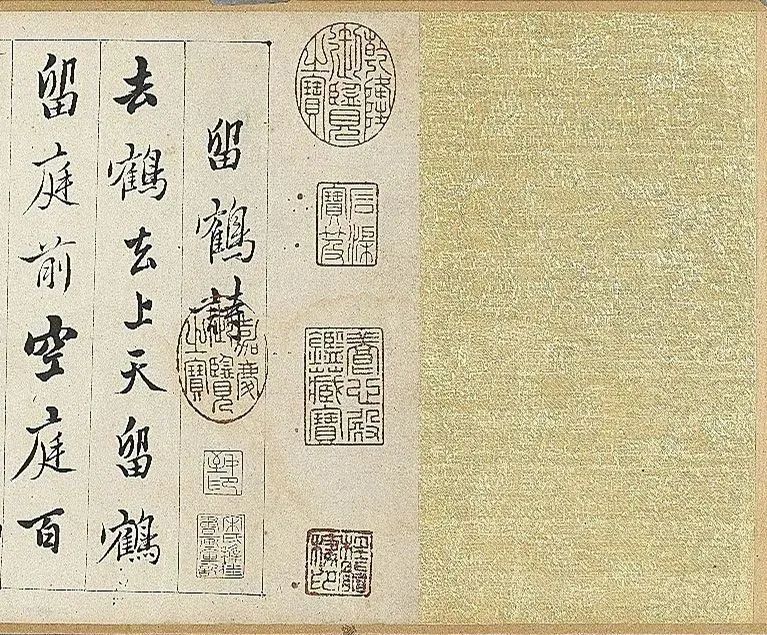 乾隆御覽之寶
石渠寶笈
養心殿鑑藏寶
留鶴詩
嘉慶御覽之寶
去鶴去上天留鶴
留庭前空庭百